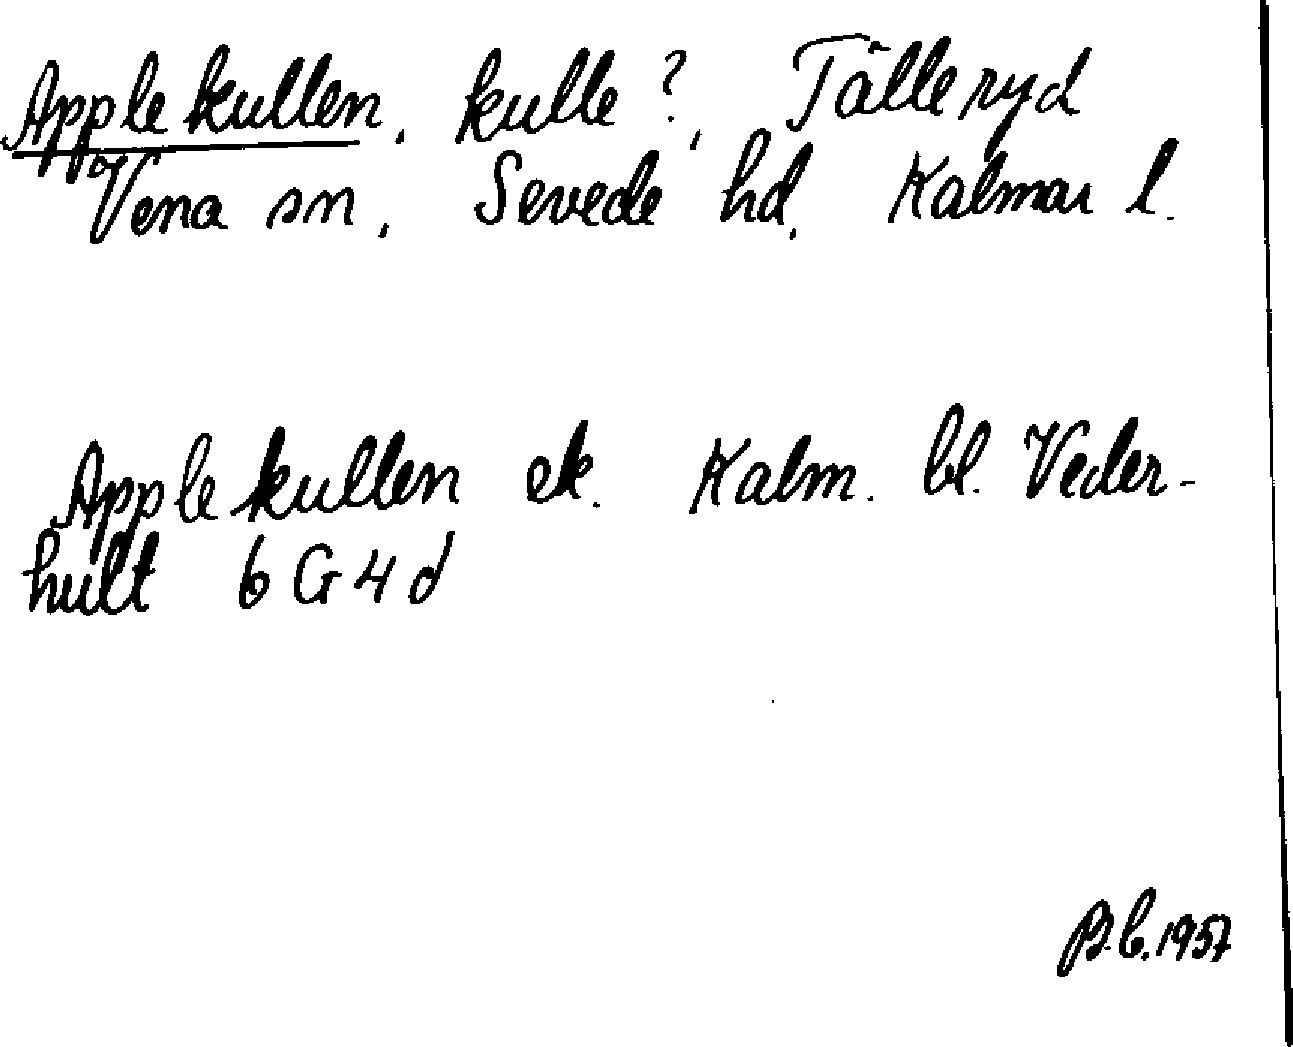 Applekullen, kulle?, Tälleryd
Vena sn, Sevede hd, Kalmar l.
Applekullen ek. Kalm. bl. Veder-
hult 6G4d
B.C. 1957